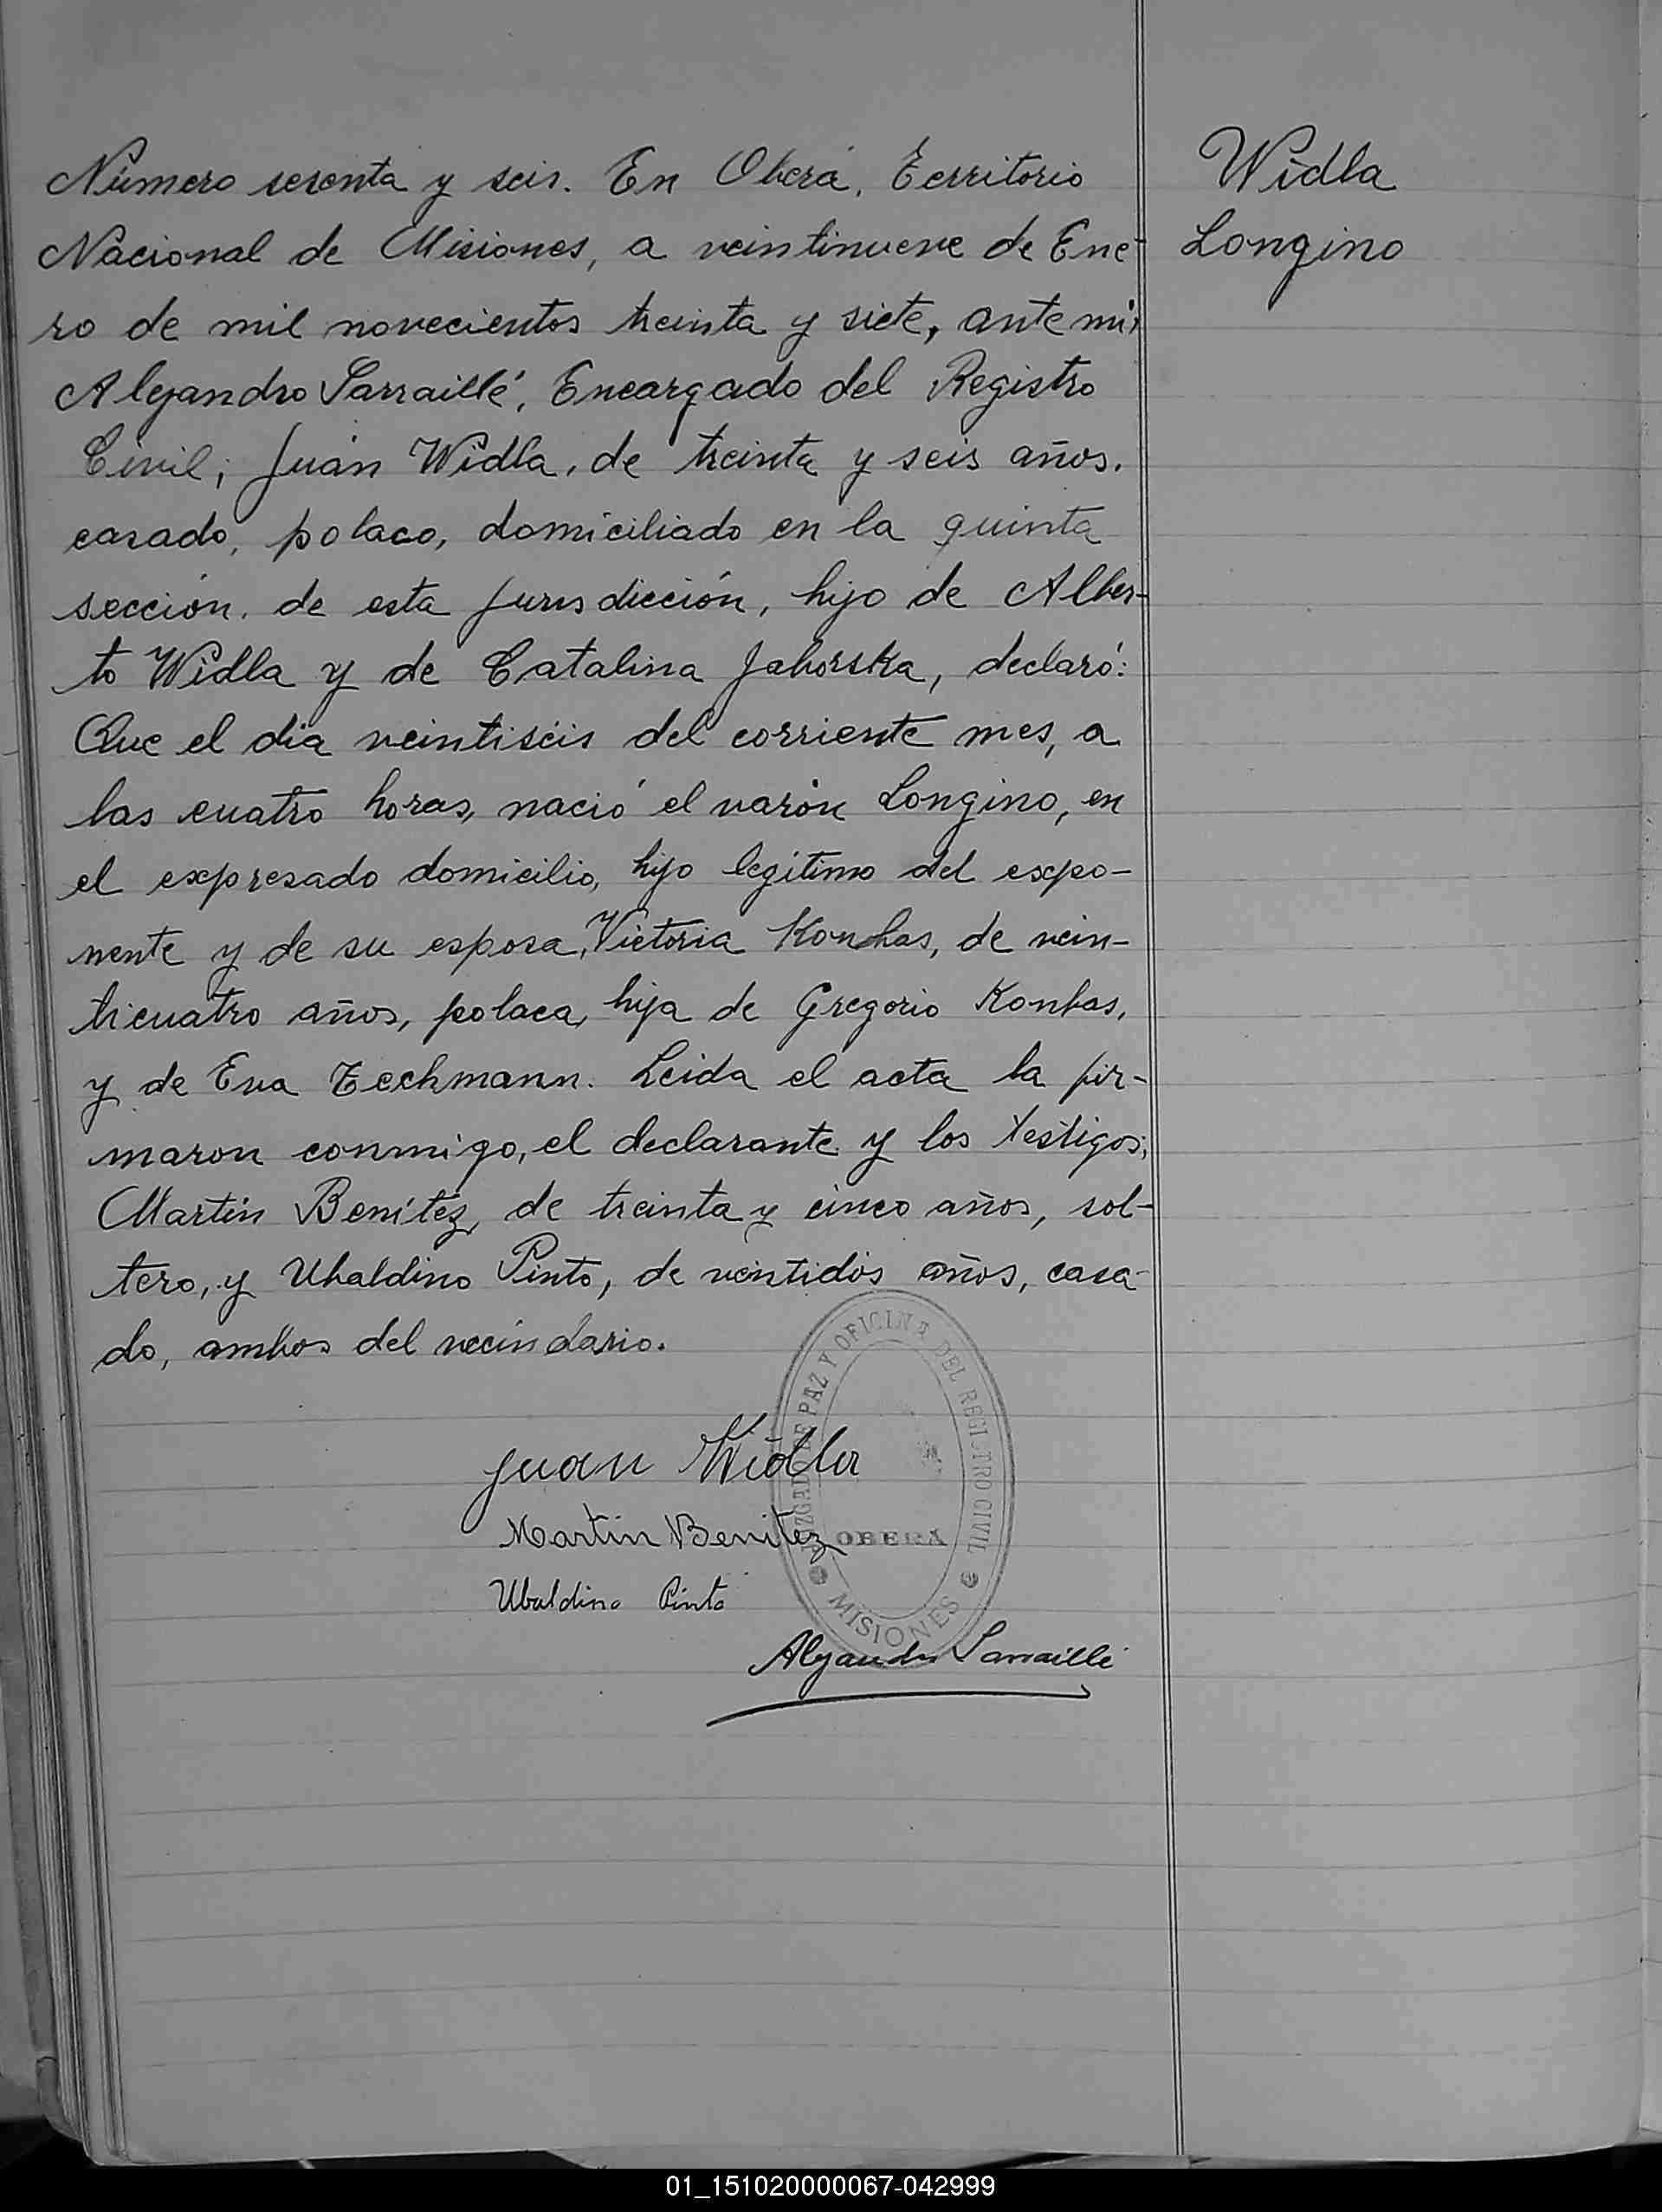 Número sesenta y seis. En Oberá, Territorio
Nacional de Misiones, a veintinueve de Ene-
ro de mil novecientos treinta y siete, ante mi,
Alejandro Sarraillé, Encargado del Registro
Civil; Juan Widla, de treinta y seis años,
casado, polaco, domiciliado en la quinta
sección, de esta jurisdicción, hijo de Alber-
to Widla y de Catalina Jaborska, declaró:
Que el dia veintiseis del corriente mes, a
las cuatro horas, nació el varón Longino, en
el expresado domicilio, hijo legítimo del expo-
nente y de su esposa, Victoria Konbas, de vein-
ticuatro años, polaca, hija de Gregorio Konbas,
y de Eva Techmann. Leida el acta la fir-
maron conmigo, el declarante y los testigos;
Martín Benítez, de treinta y cinco años, sol-
tero, y Ubaldino Pinto, de veintidós años, casa-
do, ambos del vecindario.
Widla
Longino
Juan Widla
Martin Benitez
Ubaldino Pinto
Alejandro Sarraillé
JUZGADO DE PAZ Y OFICINA DEL REGISTRO CIVIL
OBERA
MISIONES
01_151020000067-042999